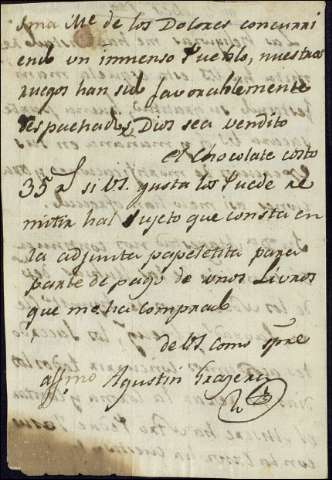 sma Me. de los Dolores concurri
endo un inmenso Pueblo, nuestros
ruegos han sido favorablemente
despachados, Dios sea vendito
el Chocolate costo
35 rs. si Vs. gusta los Puede re
mitir hal sujeto que consta en
la adjunta papeletita para
parte de pago de unos Livros
que me ha comprado
de Vs. como spre
affmo Agustin